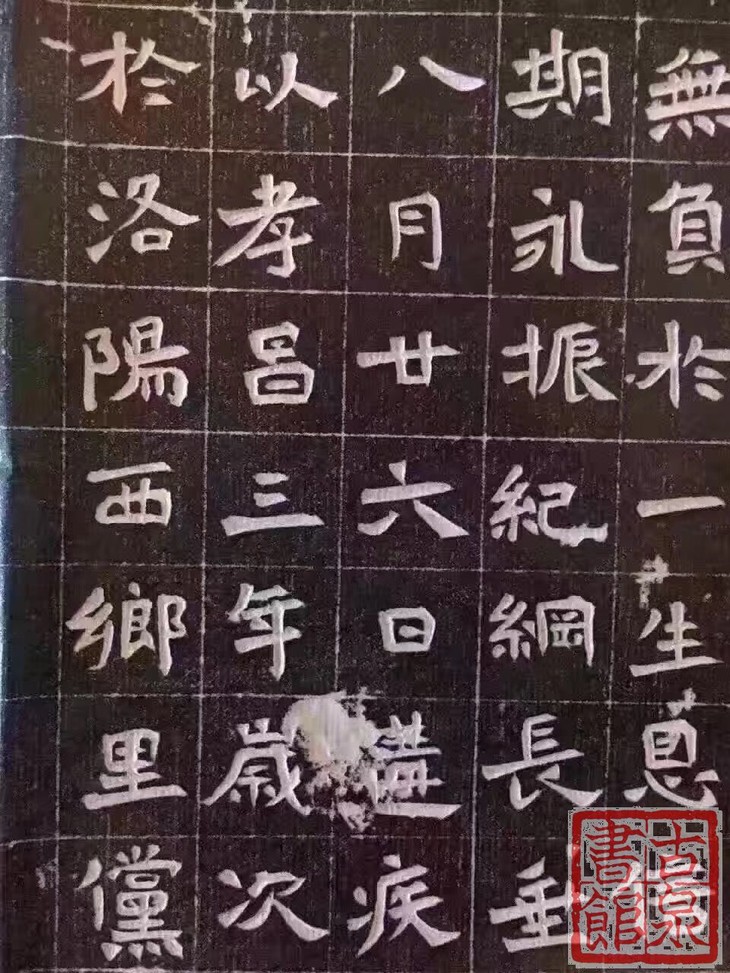 無負於一生恩
期永振紀綱長垂
八月廿六日遘疾
以孝昌三年歲次
於洛陽西鄉里儻
古京書館